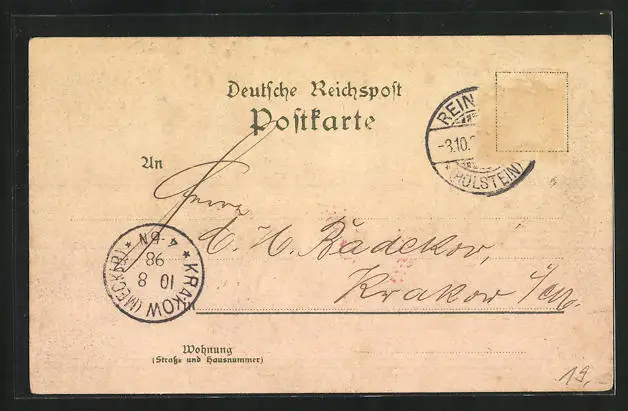 Deutsche Reichspost
Postkarte
An
REIN
-3.10.
(HOLSTEIN)
Krakow i/M.
4-5N
98
10 8
* KRAKOW (MECKLB) *
Wohnung
(Straße und Hausnummer)
19,-